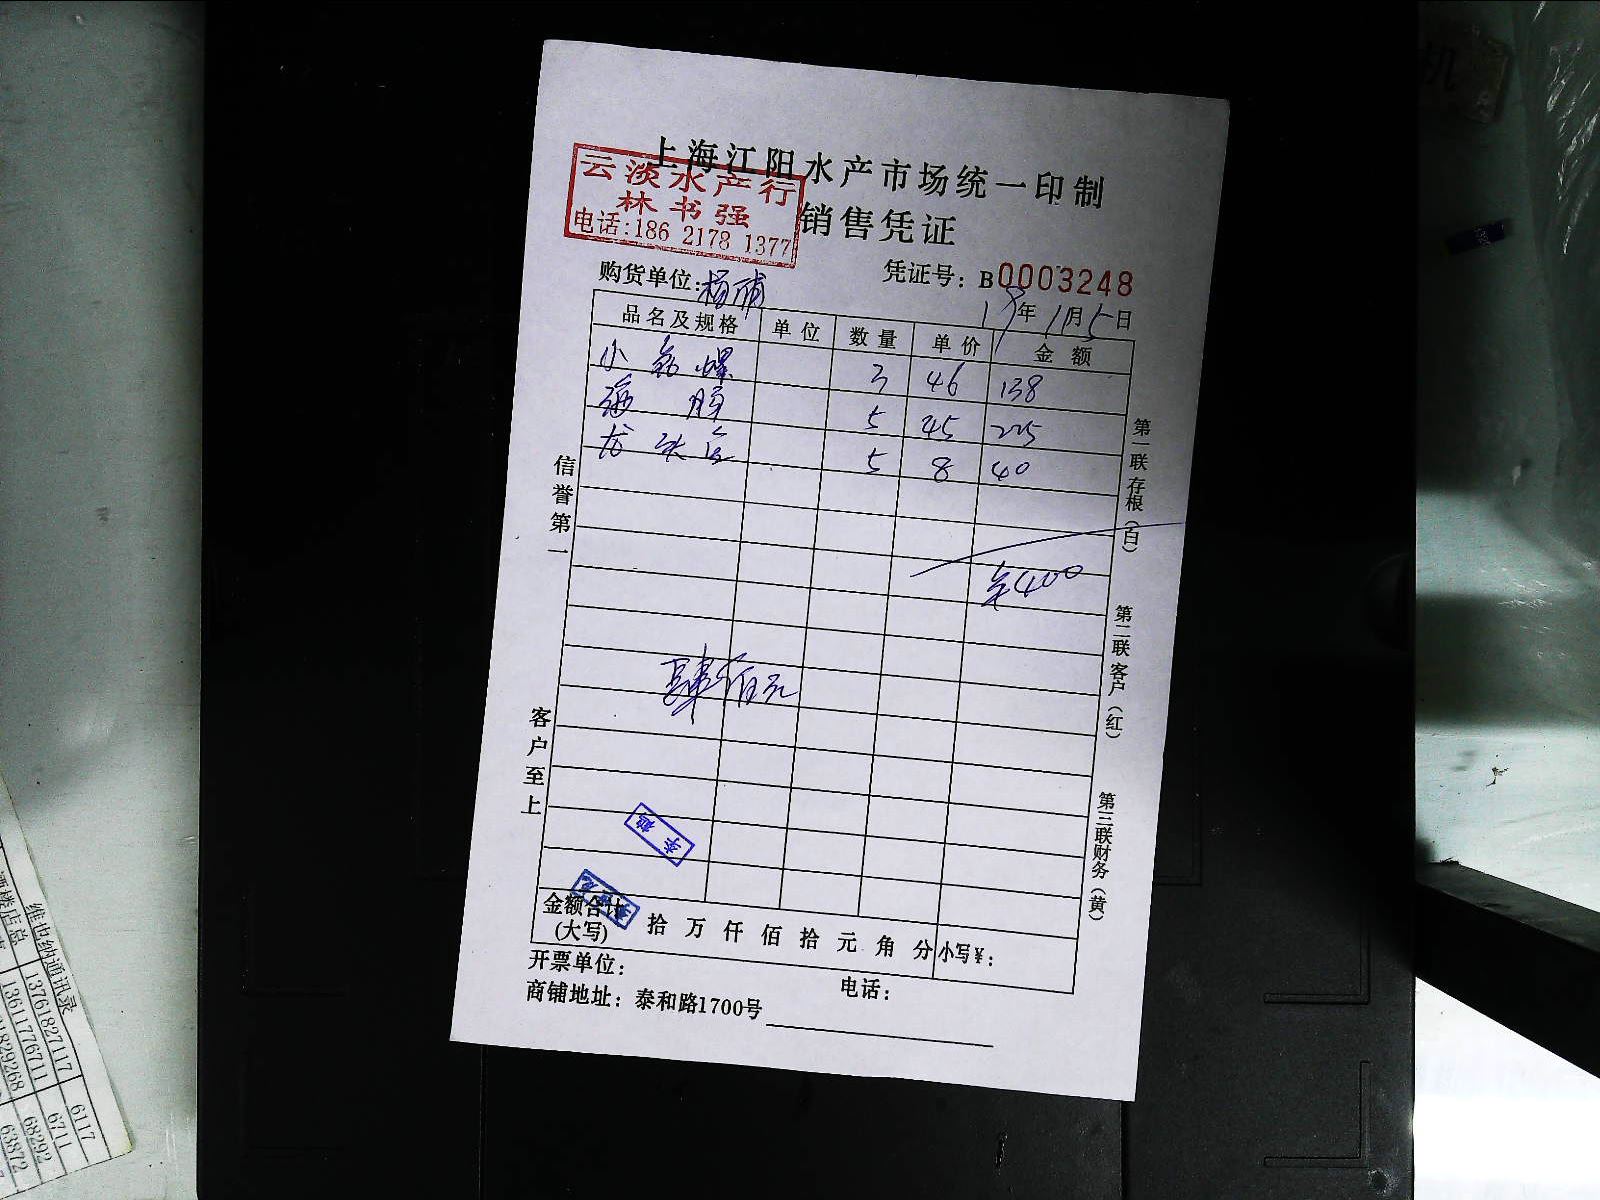 上海江阳水产市场统一印制
销售凭证
云淡水产行
林书强
电话:186 2178 1377
购货单位:杨浦
凭证号: B0003248
19年1月5日
品名及规格 单位 数量 单价 金额
小 螺 3 46 138
海 5 45 225
龙头 5 8 40
¥400
肆佰元
信誉第一
客户至上
第一联存根(白)
第二联客户(红)
第三联财务(黄)
金额合计
(大写) 拾 万 仟 佰 拾 元 角 分 小写¥:
开票单位: 电话:
商铺地址: 泰和路1700号
维也纳通讯录
酒楼店总
13761827117 6117
13611776711 6711
829268 68292
63872